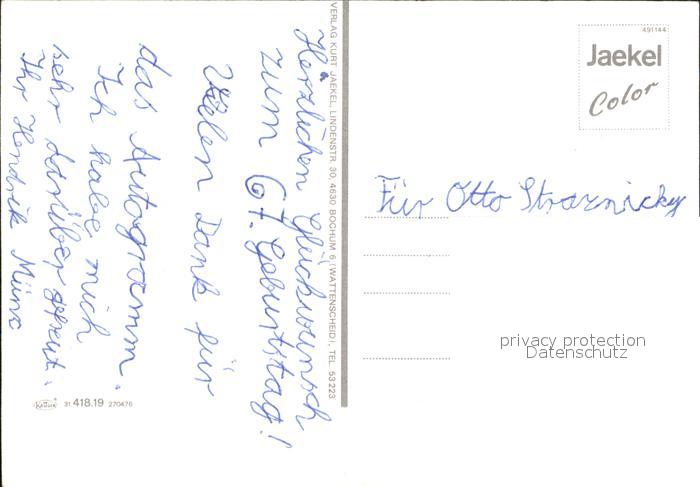 Herzlichen Glückwunsch
zum 67. Geburtstag!
Vielen Dank für
das Autogramm.
Ich habe mich
sehr darüber gefreut.
Ihr Hendrik Münz
VERLAG KURT JAEKEL, LINDENSTR. 30, 4630 BOCHUM 6 (WATTENSCHEID), TEL. 53223
Krüger
31 418.19 270476
491144
Jaekel
Color
Für Otto Straznicky
privacy protection
Datenschutz